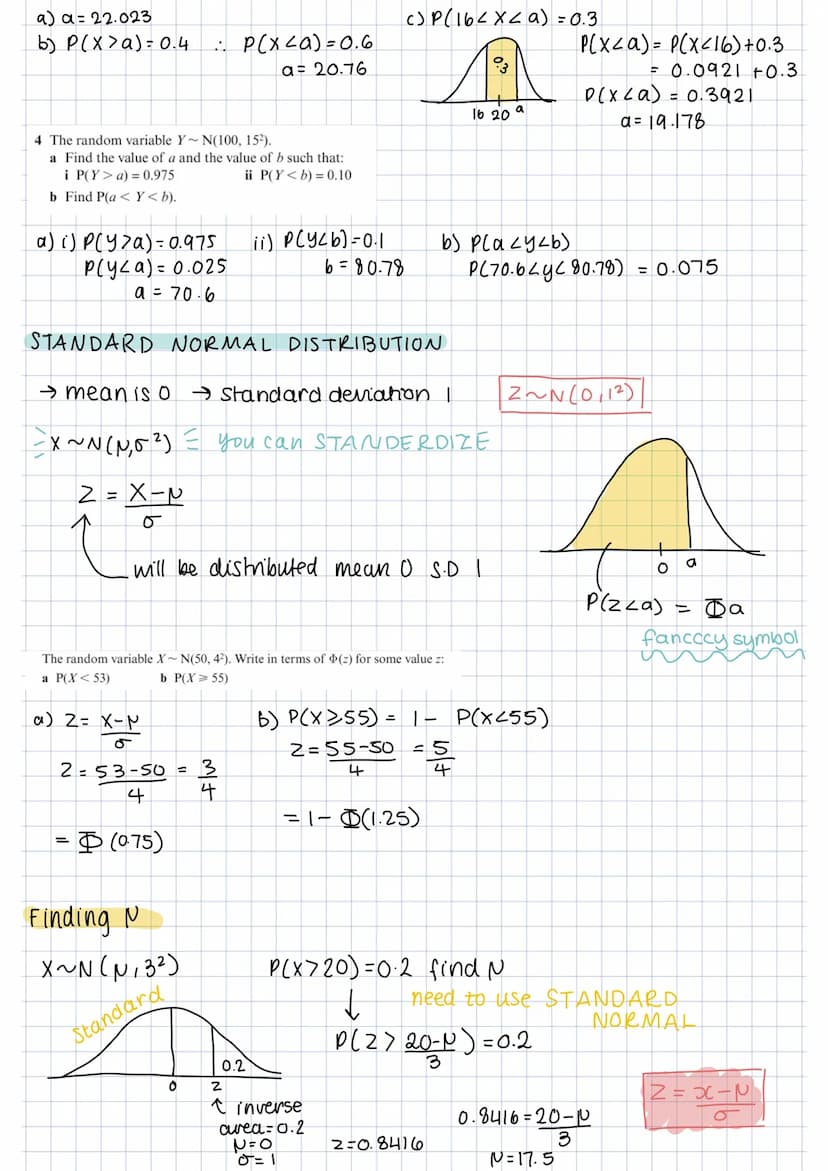 a) a = 22.023
b) P(X > a) = 0.4 ∴ P(X < a) = 0.6
a = 20.76
c) P(16 < X < a) = 0.3
0.3
16 20 a
P(X < a) = P(X < 16) + 0.3
= 0.0921 + 0.3
P(X < a) = 0.3921
a = 19.178
4 The random variable Y ~ N(100, 15²).
a Find the value of a and the value of b such that:
i P(Y > a) = 0.975 ii P(Y < b) = 0.10
b Find P(a < Y < b).
a) i) P(Y > a) = 0.975
P(Y < a) = 0.025
a = 70.6
ii) P(Y < b) = 0.1
b = 80.78
b) P(a < Y < b)
P(70.6 < Y < 80.78) = 0.075
STANDARD NORMAL DISTRIBUTION
→ mean is 0 → standard deviation 1 Z ~ N(0, 1²)
X ~ N(μ, σ²) you can STANDERDIZE
Z = X - μ
σ
will be distributed mean 0 S.D 1
0 a
P(Z < a) = Φa
fancccy symbol
The random variable X ~ N(50, 4²). Write in terms of Φ(z) for some value z:
a P(X < 53) b P(X ⩾ 55)
a) Z = X - μ
σ
Z = 53 - 50 = 3
4 4
= Φ (0.75)
b) P(X ⩾ 55) = 1 - P(X < 55)
Z = 55 - 50 = 5
4 4
= 1 - Φ(1.25)
Finding μ
X ~ N(μ, 3²) P(X > 20) = 0.2 find μ
↓ need to use STANDARD
NORMAL
P(Z > 20 - μ) = 0.2
3
standard
0.2
0 z
↑ inverse
area = 0.2
μ = 0
σ = 1
z = 0.8416
0.8416 = 20 - μ
3
μ = 17.5
Z = x - μ
σ